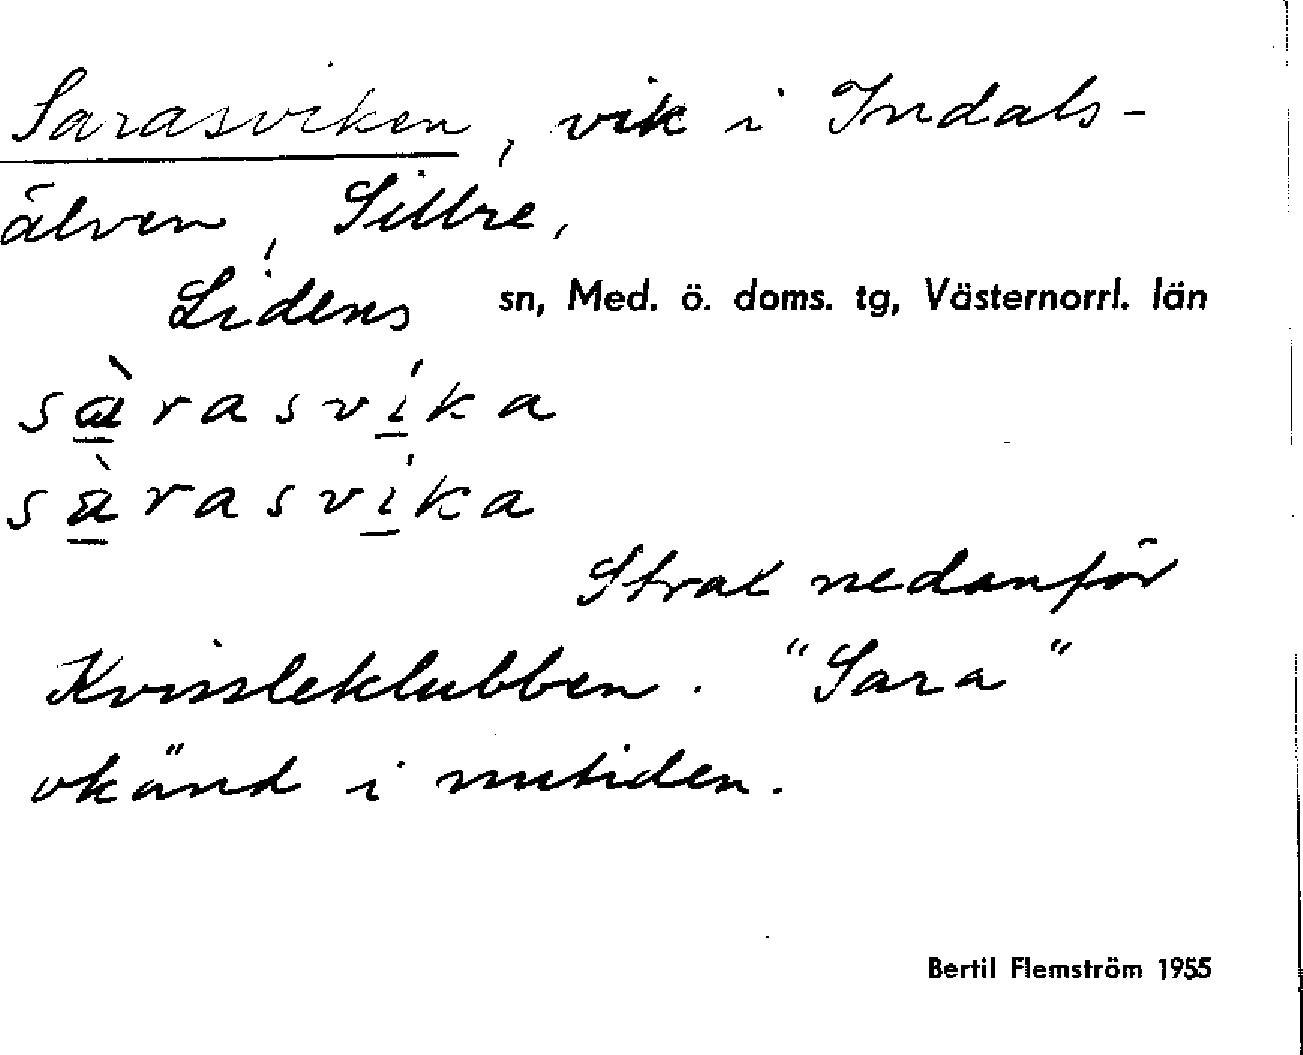 Sarasviken, vik i Indals-
älven, Sillre,
Lidens sn, Med. ö. doms. tg, Västernorrl. län
sàrasvíka
sàrasvíka
Strax nedanför
Kvissleklubben. "Sara"
okänd i nutiden.
Bertil Flemström 1955